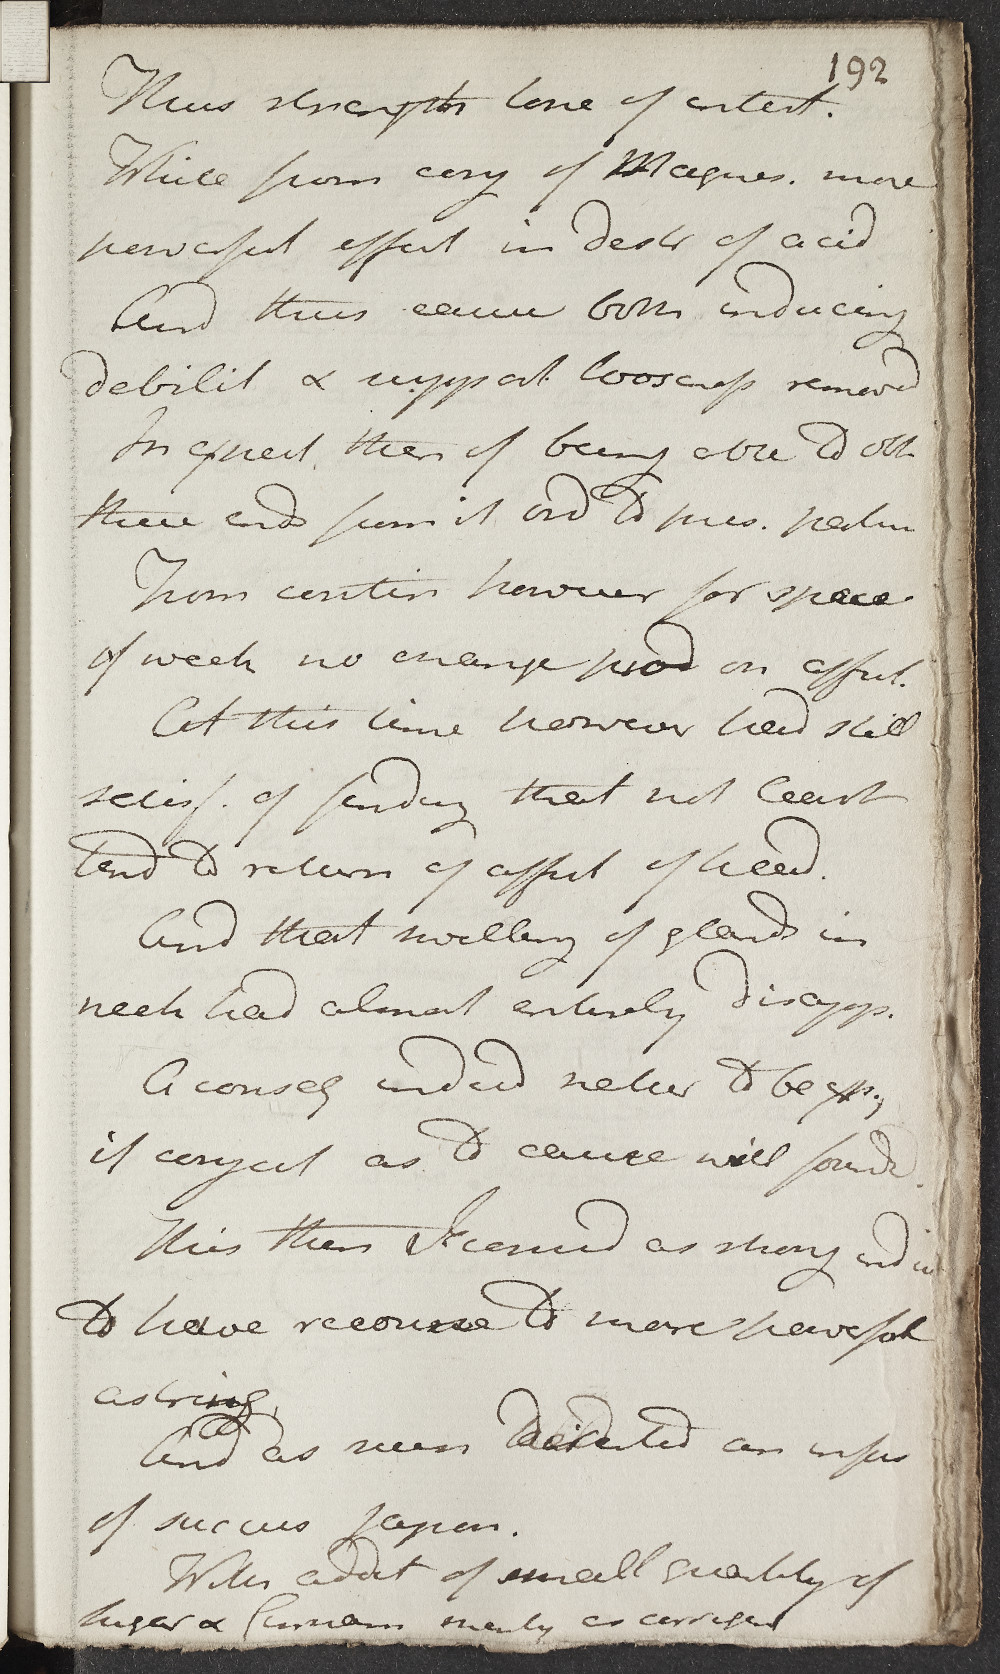 192
Thus strength tone of intest.
While from conj of Magnes. more
powerful effect in destr of acid
And thus cause both inducing
debilit & support loosness removed
In expect. then of being able to obt
these ends from it ord to pres.
From contin however for space
of week no change prod on affect.
At this time however had still
satisf. of finding that not least
tend to return of affect of head.
And that swelling of glands in
neck had almost entirely disapp.
A conseq indeed natur to be exp.
if conject as to cause well found.
This then I consid as strong indic
to have recourse to more powerful
astring.
And as such directed an infus
of succus Japon.
With addit of small quantity of
sugar & Cinnam merely as corrigen